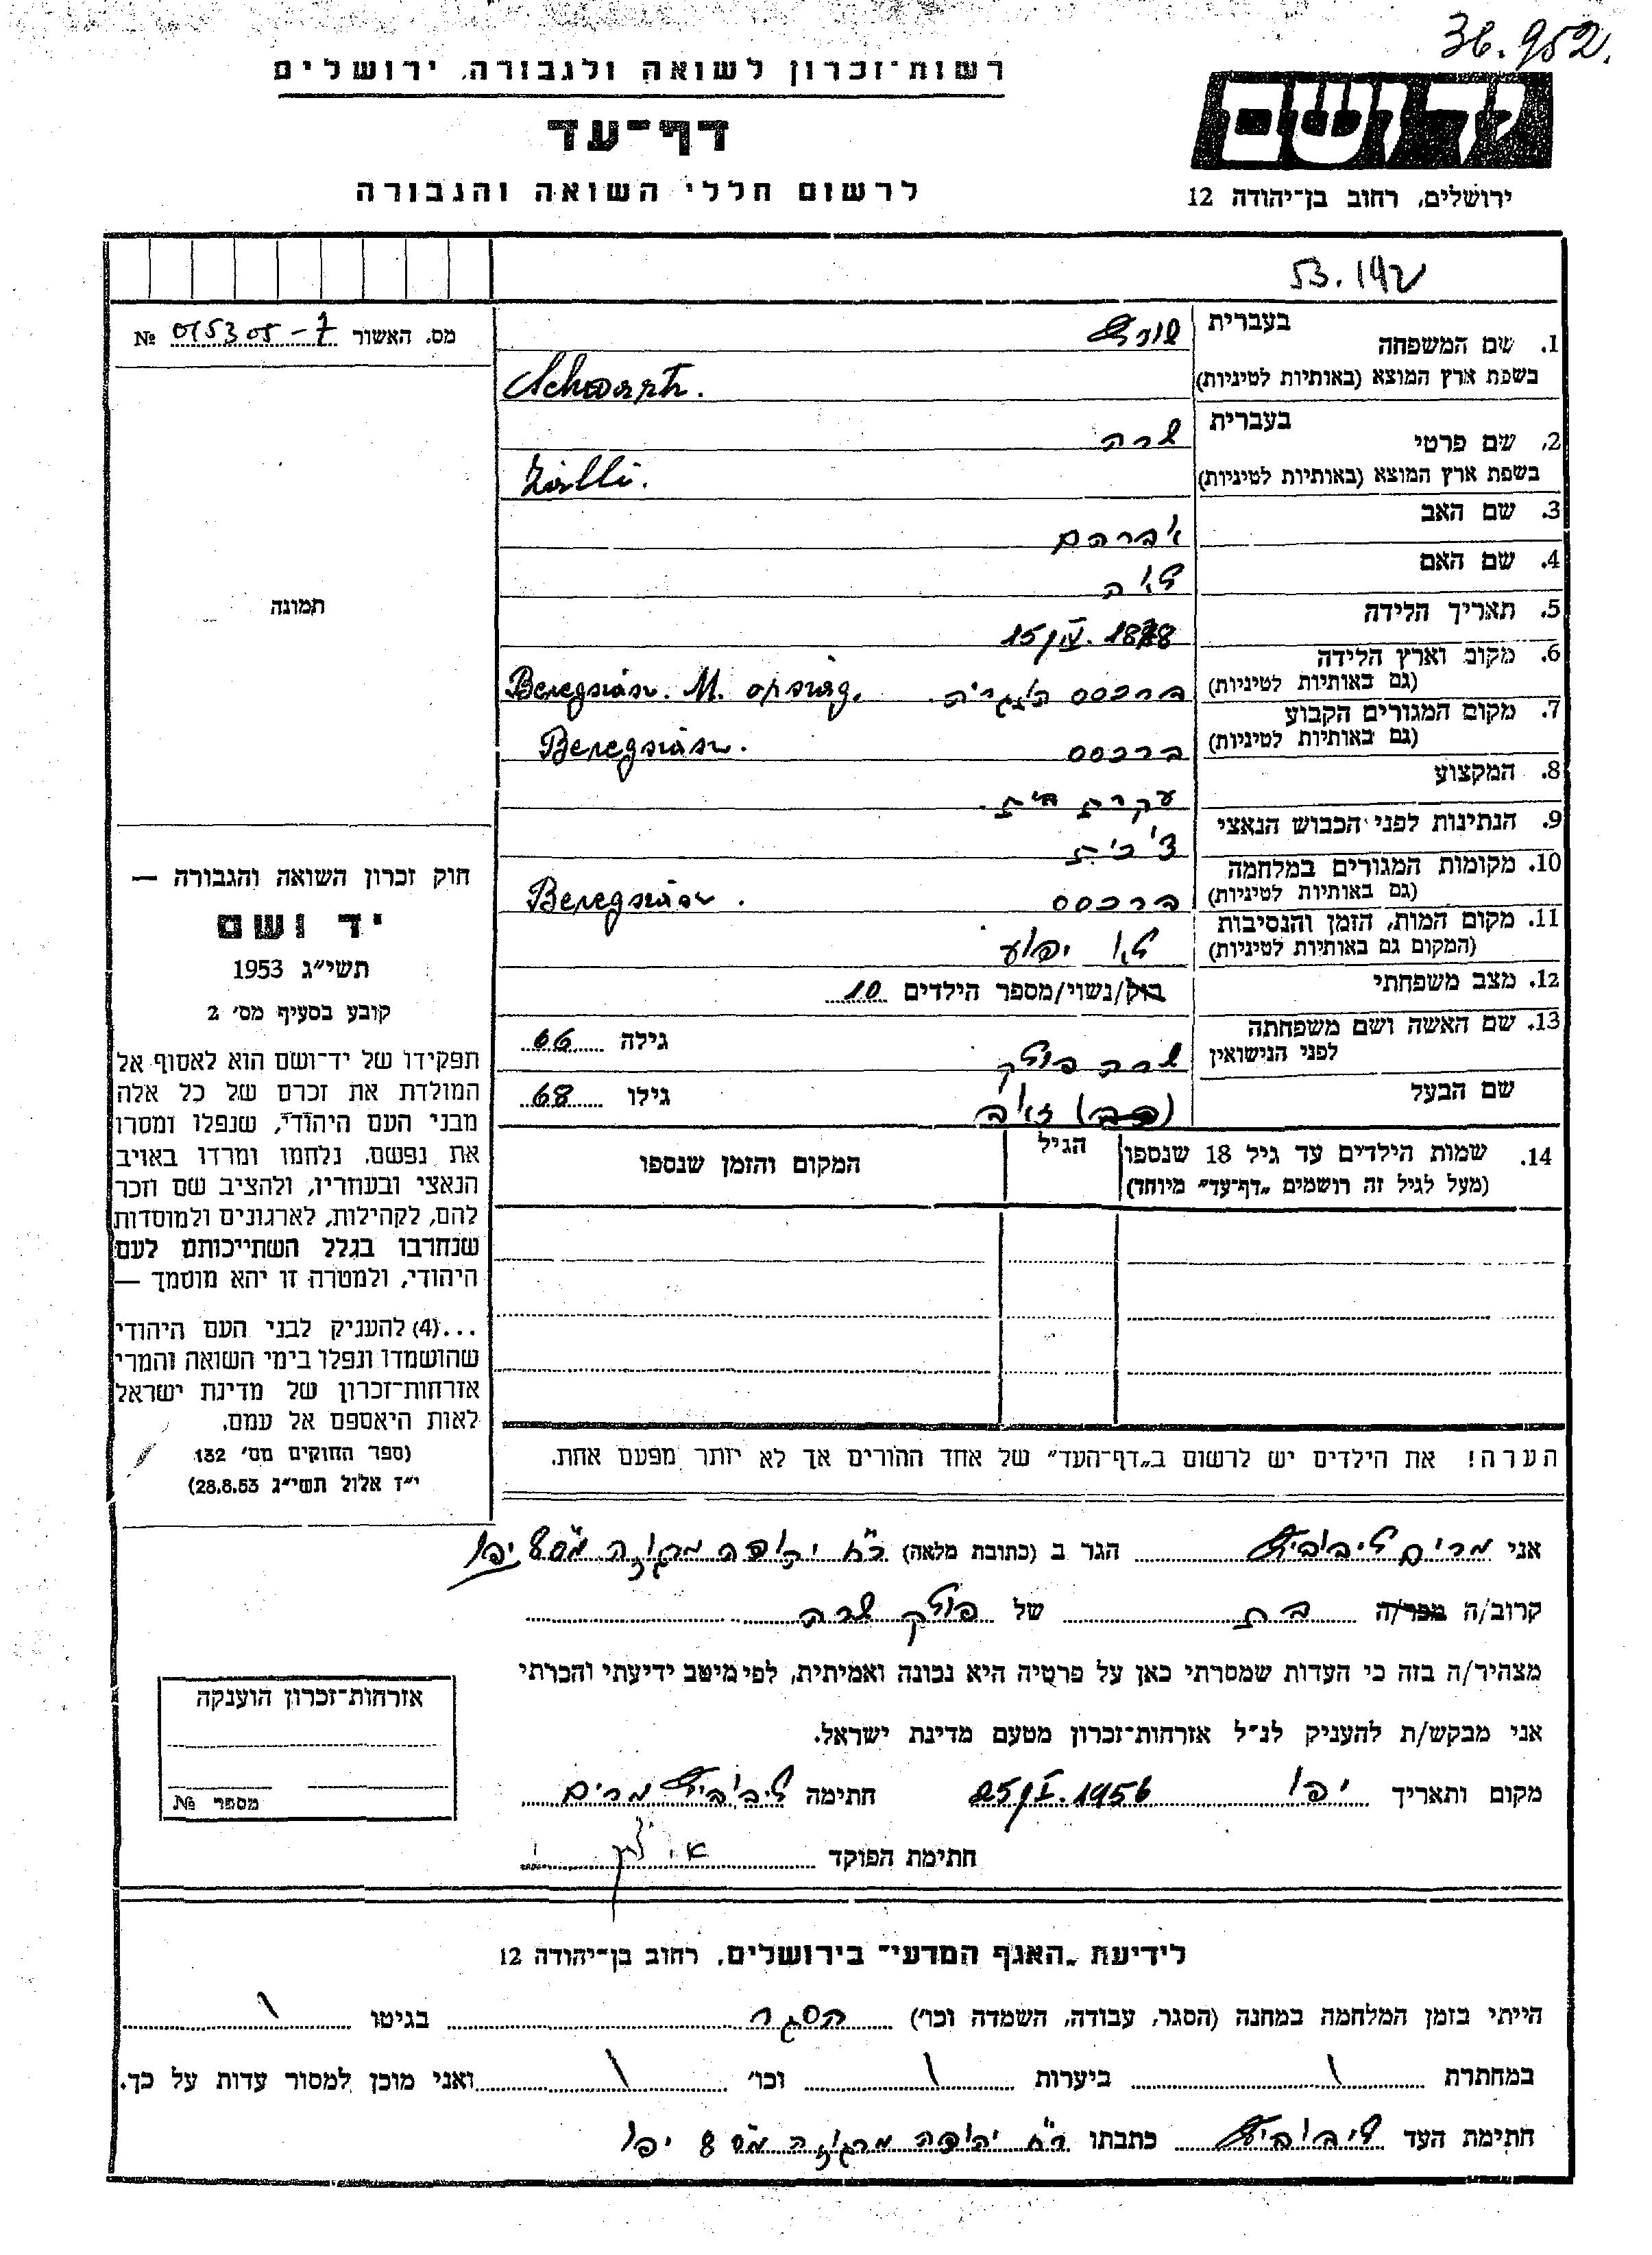 36.952.
רשות־זכרון לשואה ולגבורה, ירושלים
דף־עד
לרשום חללי השואה והגבורה
יד ושם
ירושלים, רחוב בן־יהודה 12
53.192
מס. האשור 015305-7 №
תמונה
1. שם המשפחה בעברית שורץ
בשפת ארץ המוצא (באותיות לטיניות) Schwartz.
2. שם פרטי בעברית שרה
בשפת ארץ המוצא (באותיות לטיניות) Zálli.
3. שם האב אברהם
4. שם האם לאה
5. תאריך הלידה 15/IV. 1878
6. מקום וארץ הלידה
(גם באותיות לטיניות) ברכסס הונגריה. Beregszász. M. orszag.
7. מקום המגורים הקבוע
(גם באותיות לטיניות) ברכסס Beregszász.
8. המקצוע עקרת בית.
9. הנתינות לפני הכבוש הנאצי צ'כית
10. מקומות המגורים במלחמה
(גם באותיות לטיניות) ברכסס Beregszász.
11. מקום המות, הזמן והנסיבות
(המקום גם באותיות לטיניות) לא ידוע
12. מצב משפחתי רוק/נשוי/מספר הילדים 10
13. שם האשה ושם משפחתה
לפני הנישואין שרה פולק גילה 66
שם הבעל זאב גילו 68
14. שמות הילדים עד גיל 18 שנספו הגיל המקום והזמן שנספו
(מעל לגיל זה רושמים "דף־עד" מיוחד)
חוק זכרון השואה והגבורה —
יד ושם
תשי"ג 1953
קובע בסעיף מס׳ 2
תפקידו של יד־ושם הוא לאסוף אל
המולדת את זכרם של כל אלה
מבני העם היהודי, שנפלו ומסרו
את נפשם, נלחמו ומרדו באויב
הנאצי ובעוזריו, ולהציב שם וזכר
להם, לקהילות, לארגונים ולמוסדות
שנחרבו בגלל השתייכותם לעם
היהודי, ולמטרה זו יהא מוסמך —
...(4) להעניק לבני העם היהודי
שהושמדו ונפלו בימי השואה והמרי
אזרחות־זכרון של מדינת ישראל
לאות היאספם אל עמם.
(ספר החוקים מס׳ 132
י"ז אלול תשי"ג 28.8.53)
הערה! את הילדים יש לרשום ב"דף־העד" של אחד ההורים אך לא יותר מפעם אחת.
אני מרים ליבוביץ הגר ב (כתובת מלאה) רח יהודה מרגוזה מס 8 יפו
קרוב/ה מכר/ה בת של פולק שרה
מצהיר/ה בזה כי העדות שמסרתי כאן על פרטיה היא נכונה ואמיתית, לפי מיטב ידיעתי והכרתי
אני מבקש/ת להעניק לנ"ל אזרחות־זכרון מטעם מדינת ישראל.
מקום ותאריך יפו 25/I.1956 חתימה ליבוביץ מרים
חתימת הפוקד
אזרחות־זכרון הוענקה
מספר №
לידיעת "האגף המדעי" בירושלים, רחוב בן־יהודה 12
הייתי בזמן המלחמה במחנה (הסגר, עבודה, השמדה וכו׳) הסגר בגיטו \
במחתרת \ ביערות \ וכו׳ \ ואני מוכן למסור עדות על כך.
חתימת העד ליבוביץ כתבתו רח יהודה מרגוזה מס 8 יפו